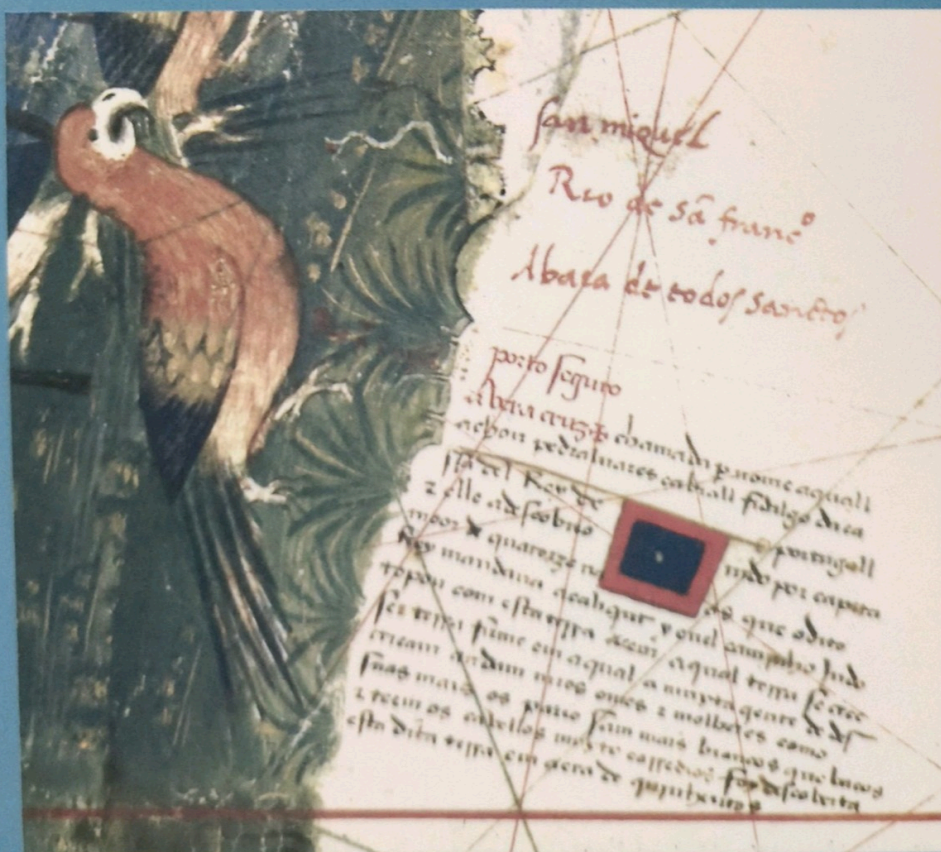 san miguel
Rio de sã franc⁰
Abaia de todos sanctos
porto seguro
a vera cruz chamada p nome aquall
achou pedralvares cabrall fidalgo da ca
ssa del Rey de portugall
z elle a descobrio indo por capita
moor de quatorze na os que o dito
Rey mandava a caliqut y en el caminho indo
topou com esta terra aqual terra se cree
ser terra firme em a qual a muyta gente de
andam nuos omes z molheres como
suas mais os pario sam mais brancos que bacos
z teem os cabellos muyto corredios foy descoberta
esta dita terra em aera de quinhentos